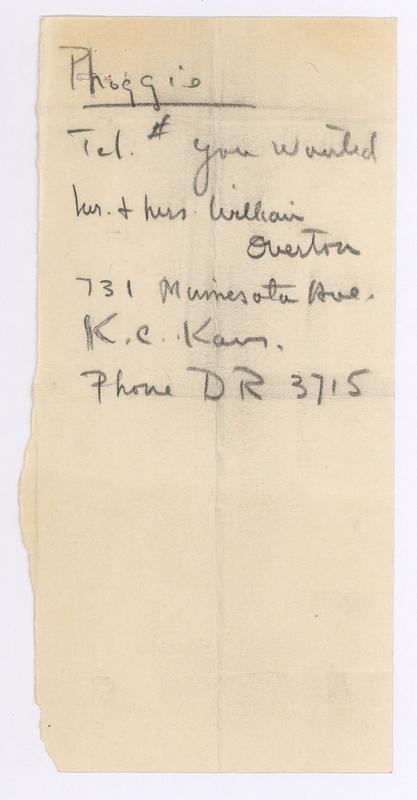 Phoggie
Tel. # you wanted
Mr. + Mrs. William
Overton
731 Minnesota Ave.
K.C. Kans.
Phone DR 3715